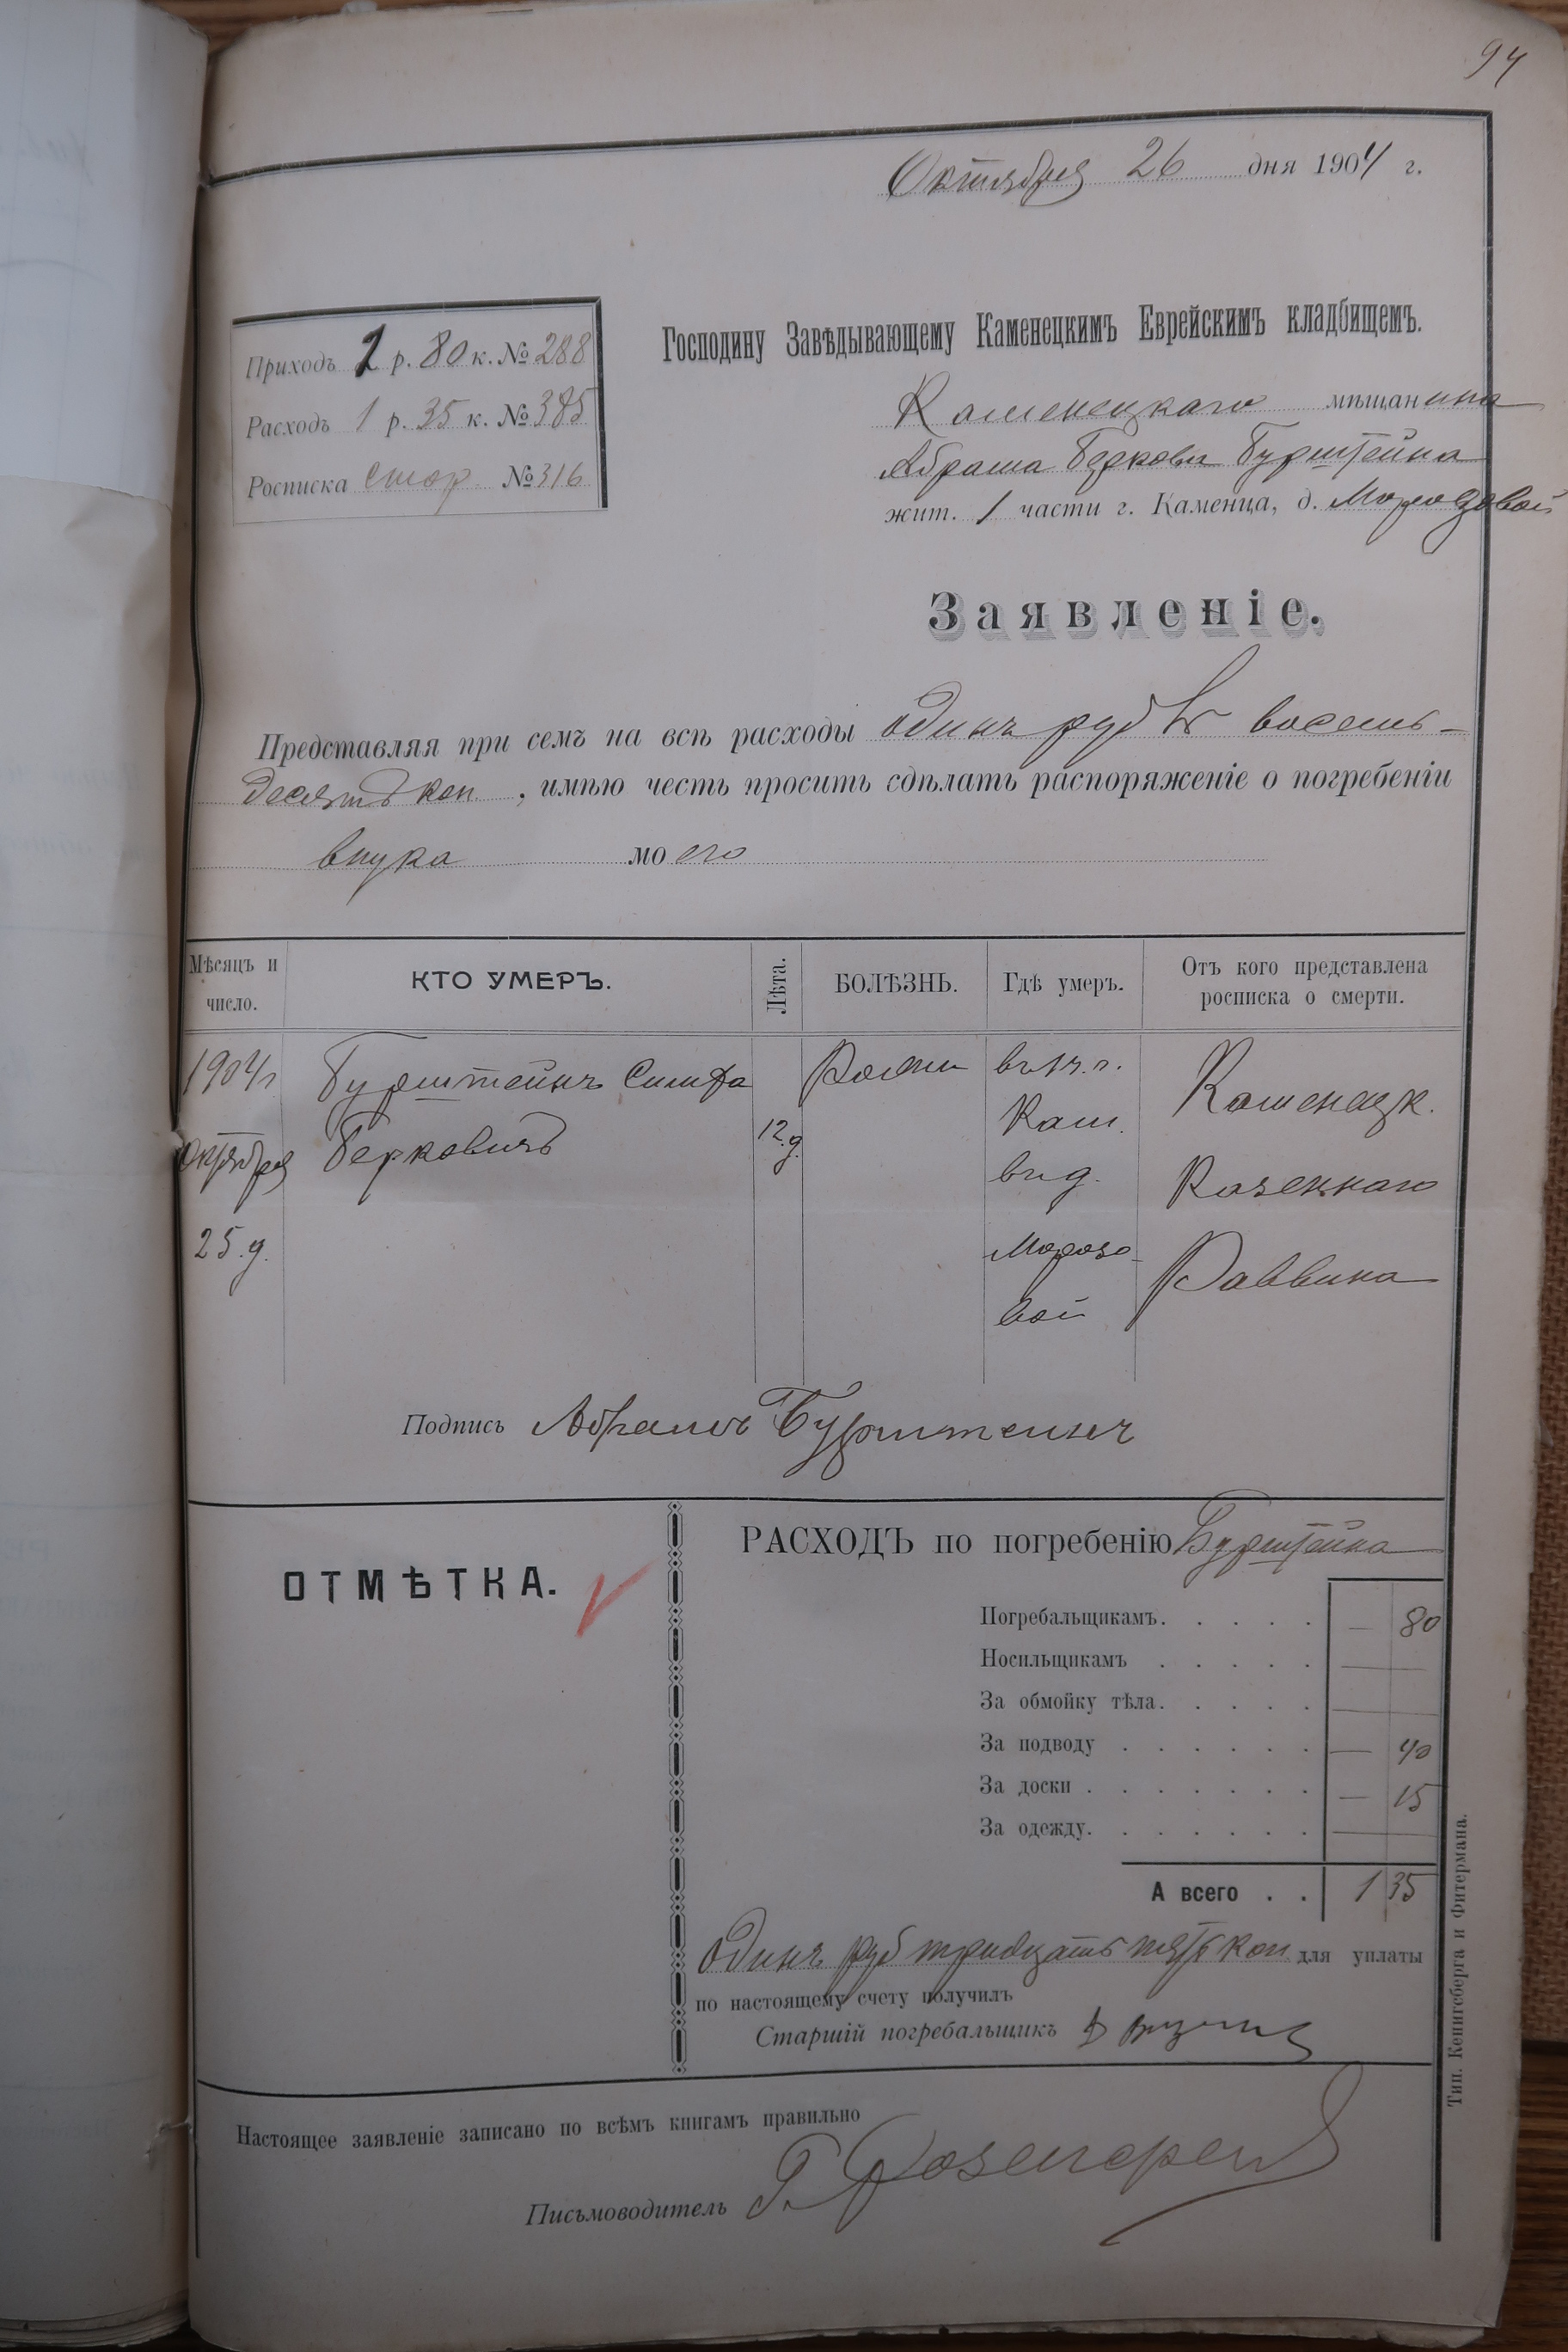 94
Октября 26 дня 1904 г.
Приходъ 1 р. 80 к. № 288
Расходъ 1 р. 35 к. № 385
Росписка стор. № 316
Господину Завѣдывающему Каменецкимъ Еврейскимъ кладбищемъ.
Каменецкаго мѣщанина
Абрама Беркова Бурштейна
жит. 1 части г. Каменца, д. Морозовой
Заявленіе.
Представляя при семъ на всѣ расходы одинъ руб восемь-
десятъ коп , имѣю честь просить сдѣлать распоряженіе о погребеніи
внука моего
Мѣсяцъ и число.
КТО УМЕРЪ.
Лѣта.
БОЛѢЗНЬ.
Гдѣ умеръ.
Отъ кого представлена росписка о смерти.
1904 г Бурштейнъ въ 1 ч. г. Каменецк.
Октября Берковичъ 12 д Кам. Казеннаго
25 д. въ д. Раввина
Морозо-
вой
Подпись Абрамъ Бурштейнъ
ОТМѢТКА.
РАСХОДЪ по погребенію Бурштейна
Погребальщикамъ. . . . . — 80
Носильщикамъ . . . . . —
За обмойку тѣла. . . . . —
За подводу . . . . . . — 40
За доски . . . . . . . — 15
За одежду. . . . . . . —
А всего . . 1 35
Одинъ руб тридцать пять коп для уплаты
по настоящему счету получилъ
Старшій погребальщикъ
Настоящее заявленіе записано по всѣмъ книгамъ правильно
Письмоводитель
Тип. Кенигсберга и Фитермана.